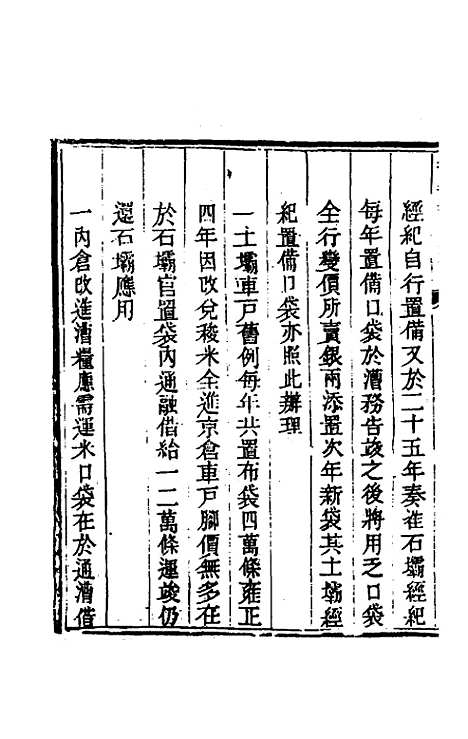 經紀自行置備又於二十五年奏准石壩經紀
每年置備口袋於漕務告竣之後將用乏口袋
全行變價所賣銀兩添置次年新袋其土壩經
紀置備口袋亦照此辦理
一土壩車戸舊例每年共置布袋四萬條雍正
四年因改兌稜米全進京倉車戸腳價無多在
於石壩官置袋內通融借給一二萬條運竣仍
還石壩應用
一內倉改進漕糧應需運米口袋在於通漕借